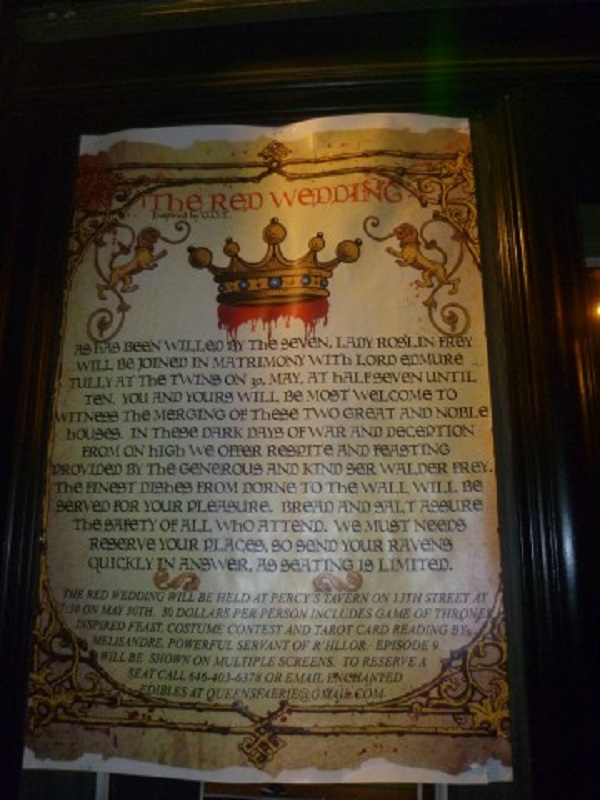 The Red Wedding
Inspired by G.O.T.
As has been willed by the Seven, Lady Roslin Frey
will be joined in matrimony with Lord Edmure
Tully at the Twins on 30, May, at half seven until
ten. You and yours will be most welcome to
witness the merging of these two great and noble
houses. In these dark days of war and deception
from on high we offer respite and feasting
provided by the generous and kind Ser Walder Frey.
The finest dishes from Dorne to the Wall will be
served for your pleasure. Bread and salt assure
the safety of all who attend. We must needs
reserve your places, so send your ravens
quickly in answer, as seating is limited.
THE RED WEDDING WILL BE HELD AT PERCY'S TAVERN ON 13TH STREET AT
7:30 ON MAY 30TH. 30 DOLLARS PER PERSON INCLUDES GAME OF THRONES
INSPIRED FEAST, COSTUME CONTEST AND TAROT CARD READING BY
MELISANDRE, POWERFUL SERVANT OF R'HLLOR. EPISODE 9
WILL BE SHOWN ON MULTIPLE SCREENS. TO RESERVE A
SEAT CALL 646-403-6378 OR EMAIL ENCHANTED
EDIBLES AT QUEENSFAERIE@GMAIL.COM